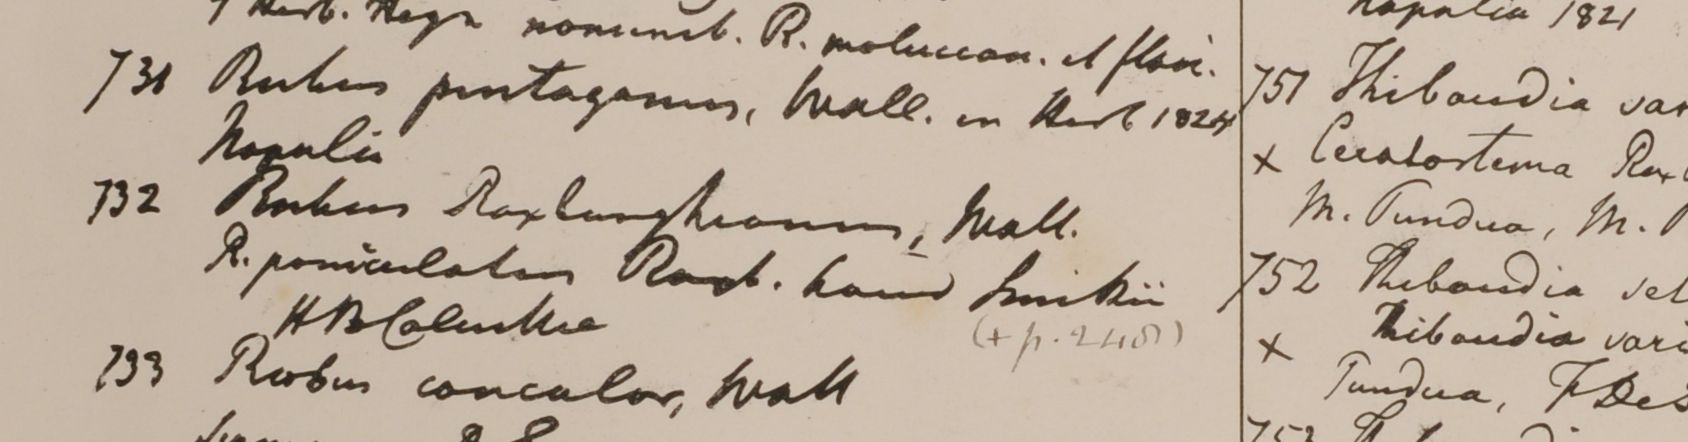 Herb. Heyn nonunib. R. moluccan. et flavi.
731 Rubus pentagonus, Wall. in Herb 1824
Napalia
732 Rubus Roxburghianus, Wall.
R. paniculatus Roxb. haud Smithii
H B Calcuttae
(+ p. 248)
733 Rubus concolor, Wall
Napalia 1821
751 Thibaudia var
x Ceratostema Rox
M. Pundua, M.
752 Thibaudia set
x Thibaudia vari
Pundua, F De S
753